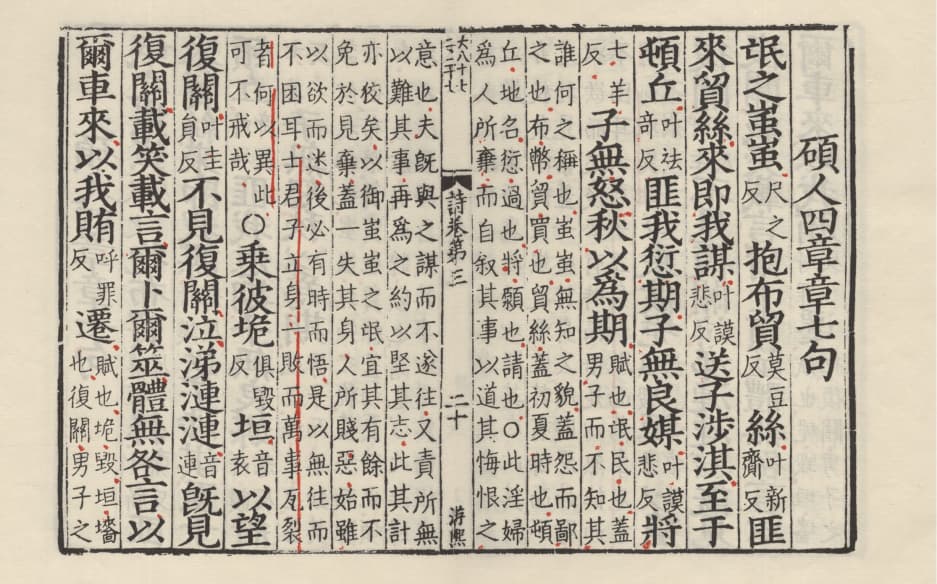 碩人四章章七句
氓之蚩蚩尺之反抱布貿莫豆反絲叶新齎反匪
來貿絲來即我謀叶謨悲反送子涉淇至于
頓丘叶祛奇反匪我愆期子無良媒叶謨悲反將
七羊反子無怒秋以為期賦也氓民也蓋男子而不知其
誰何之稱也蚩蚩無知之貌蓋怨而鄙
之也布幣貿買也貿絲蓋初夏時也頓
丘地名愆過也將願也請也○此淫婦
為人所棄而自叙其事以道其悔恨之
大八十七
詩卷第三
二十
游熙
意也夫旣與之謀而不遂往又責所無
以難其事再為之約以堅其志此其計
亦狡矣以御蚩蚩之氓宜其有餘而不
免於見棄蓋一失其身人所賤惡始雖
以欲而迷後必有時而悟是以無往而
不困耳士君子立身一敗而萬事瓦裂
者何以異此可不戒哉○乘彼垝俱毀反垣音袁以望
復關叶圭員反不見復關泣涕漣漣音連旣見
復關載笑載言爾卜爾筮體無咎言以
爾車來以我賄呼罪反遷賦也垝毀垣墻也復關男子之